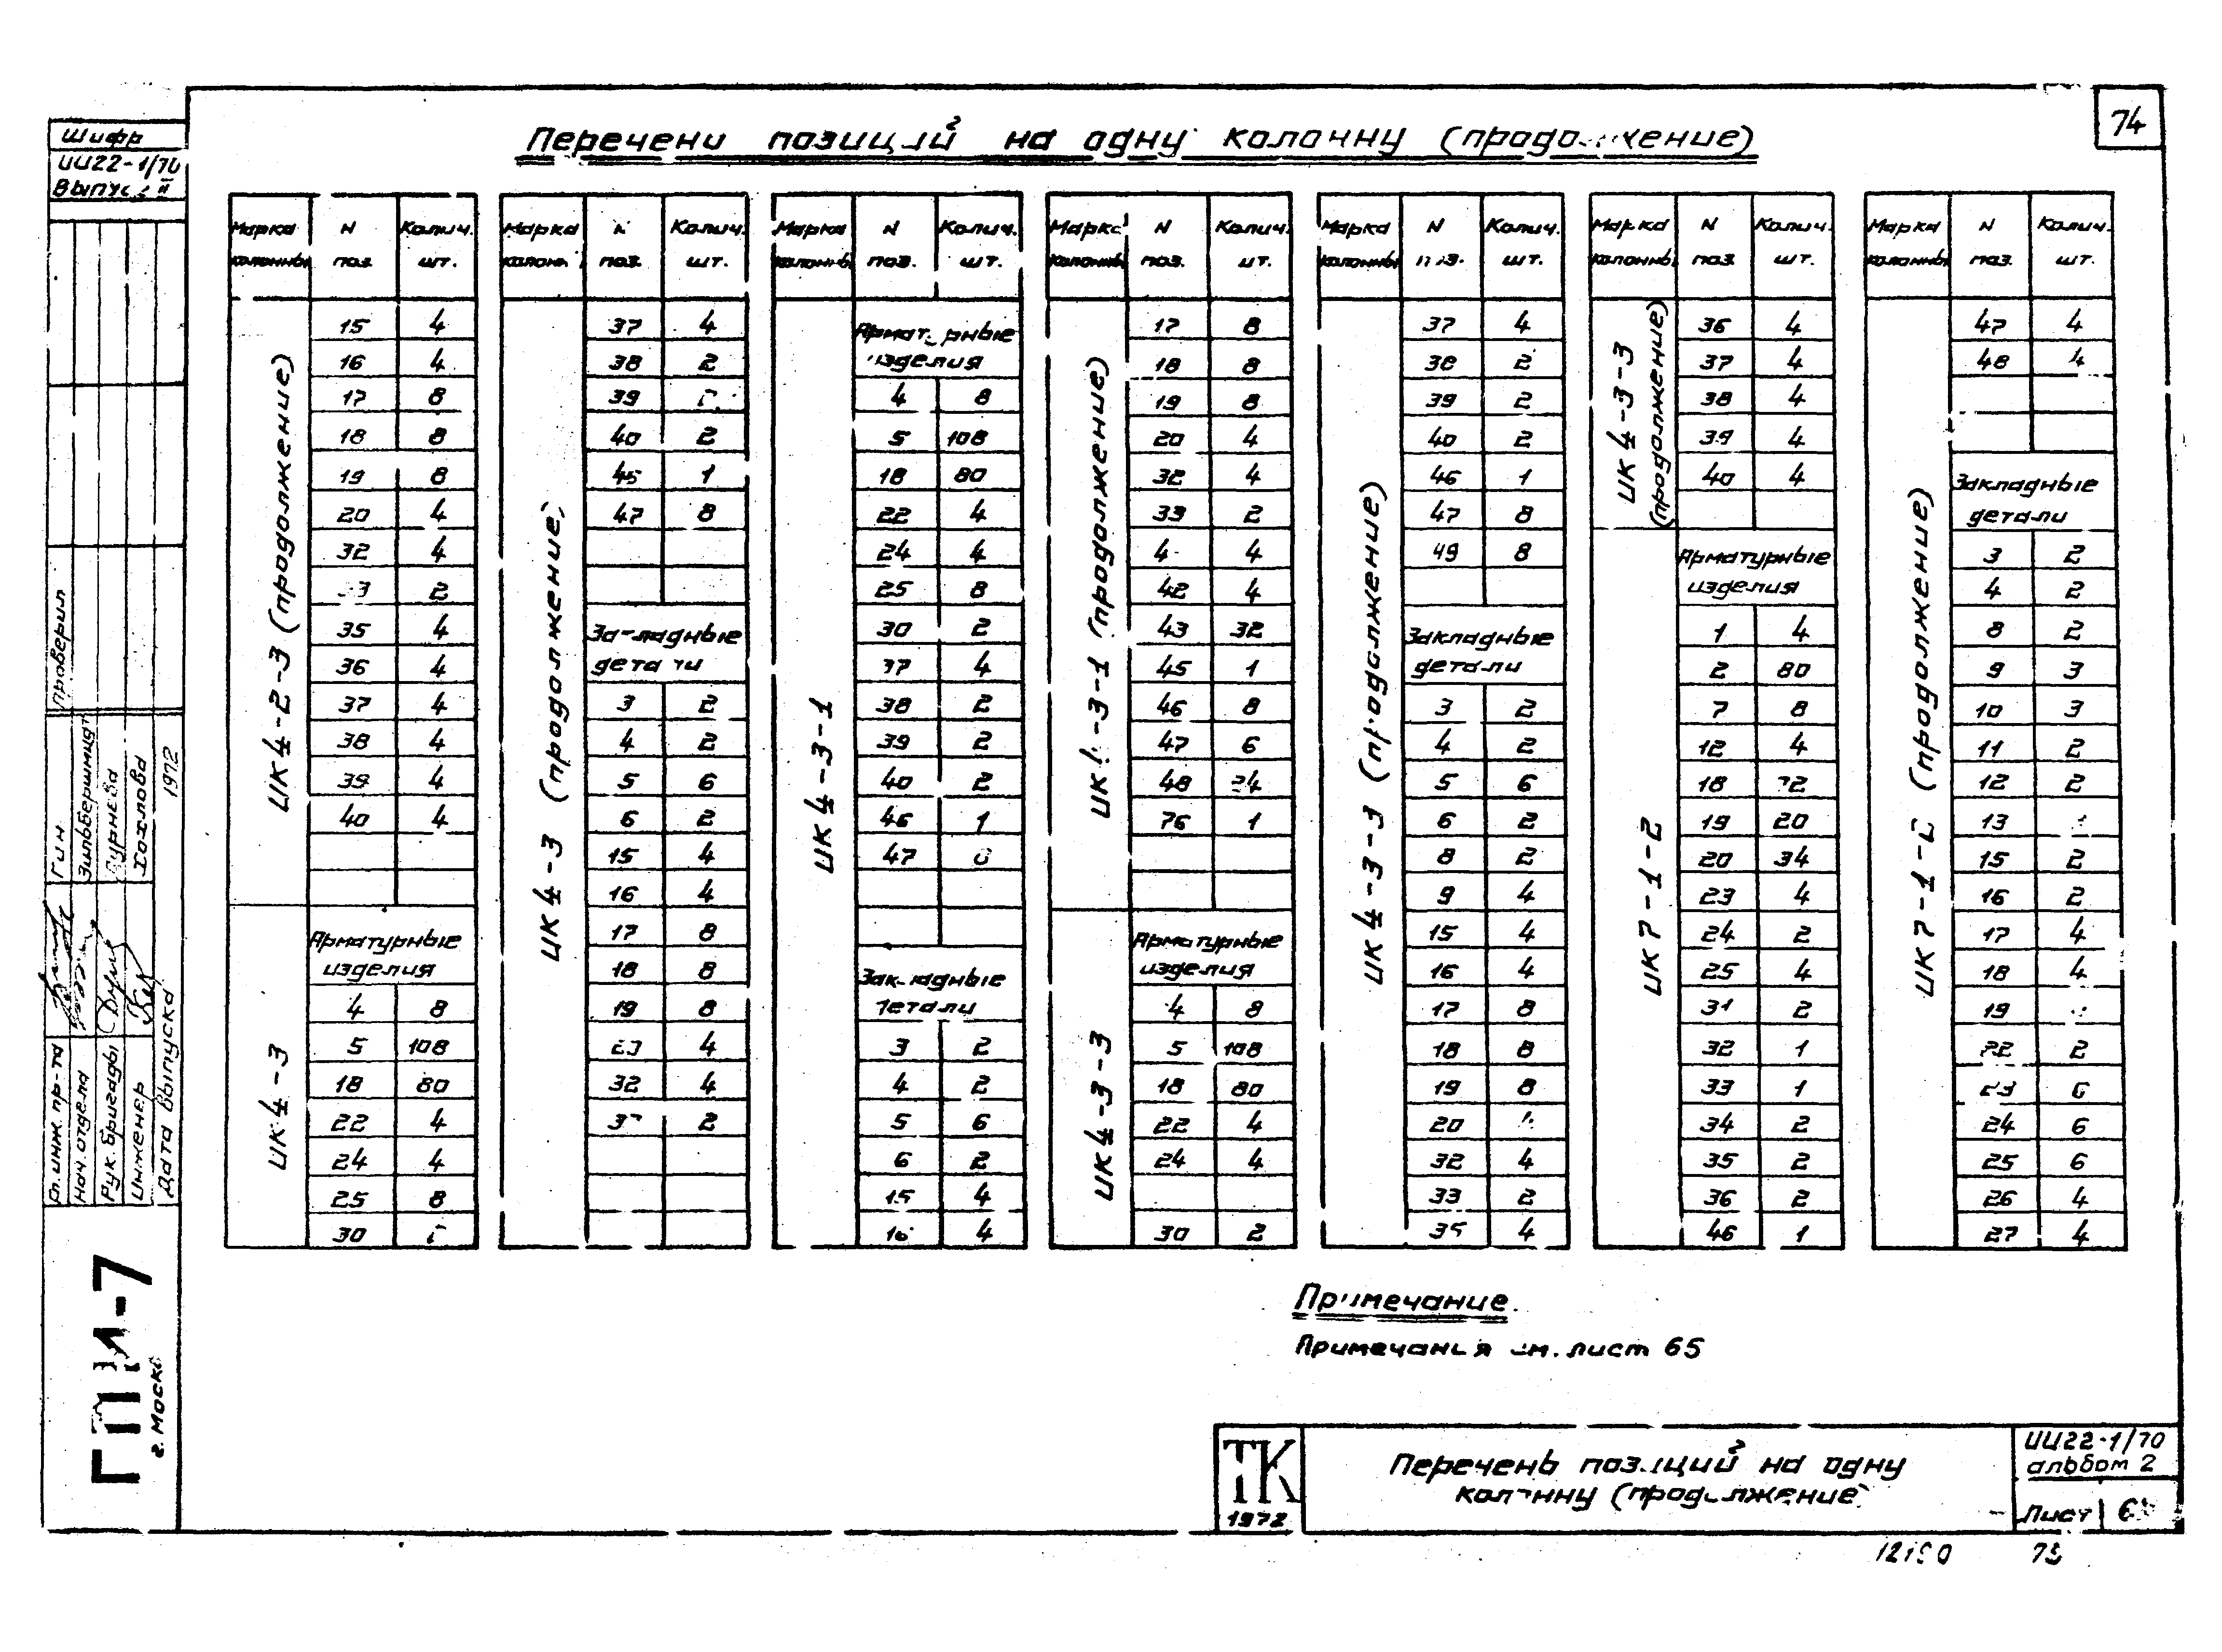 74
Перечени позиций на одну колонну (продолжение)
Шифр
ИИ22-1/70
Выпуск II
Марка колонны | N поз. | Колич. шт.
ИК4-2-3 (продолжение)
15 4
16 4
17 8
18 8
19 8
20 4
32 4
2
35 4
36 4
37 4
38 4
39 4
40 4
ИК4-3
Арматурные
изделия
4 8
5 108
18 80
22 4
24 4
25 8
30
Марка | N поз. | Колич. шт.
ИК4-3 (продолжение)
37 4
38 2
39
40 2
45 1
47 8
Закладные
детали
3 2
4 2
5 6
6 2
15 4
16 4
17 8
18 8
19 8
4
32 4
2
Марка колонны | N поз. | Колич. шт.
ИК4-3-1
Арматурные
изделия
4 8
5 108
18 80
22 4
24 4
25 8
30 2
37 4
38 2
39 2
40 2
46 1
47
Закладные
детали
3 2
4 2
5 6
6 2
15 4
16 4
Марка колонны | N поз. | Колич. шт.
(продолжение)
17 8
18 8
19 8
20 4
32 4
33 2
4
42 4
43 32
45 1
46 8
47 6
48
76 1
ИК4-3-3
Арматурные
изделия
4 8
5 108
18 80
22 4
24 4
30 2
Марка колонны | N поз. | Колич. шт.
ИК4-3-3 (продолжение)
37 4
38 2
39 2
40 2
46 1
47 8
49 8
Закладные
детали
3 2
4 2
5 6
6 2
8 2
9 4
15 4
16 4
17 8
18 8
19 8
20
32 4
33 2
35 4
Марка колонны | N поз. | Колич. шт.
ИК4-3-3
(продолжение)
36 4
37 4
38 4
39 4
40 4
ИК7-1-2
Арматурные
изделия
1 4
2 80
7 8
12 4
18 72
19 20
20 34
23 4
24 2
25 4
31 2
32 1
33 1
34 2
35 2
36 2
46 1
Марка колонны | N поз. | Колич. шт.
ИК7-1-2 (продолжение)
47 4
48 4
Закладные
детали
3 2
4 2
8 2
9 3
10 3
11 2
12 2
13
15 2
16 2
17 4
18 4
19
22 2
23 6
24 6
25 6
26 4
27 4
Проверил
Гл. инж. пр-та
Гип
Нач. отдела
Зильбершмидт
Рук. бригады
Инженер
Хохлова
Дата выпуска
1972
ГПИ-7
г. Москва
Примечание.
Примечания см. лист 65
ТК
1972
Перечень позиций на одну
колонну (продолжение)
ИИ22-1/70
альбом 2
Лист